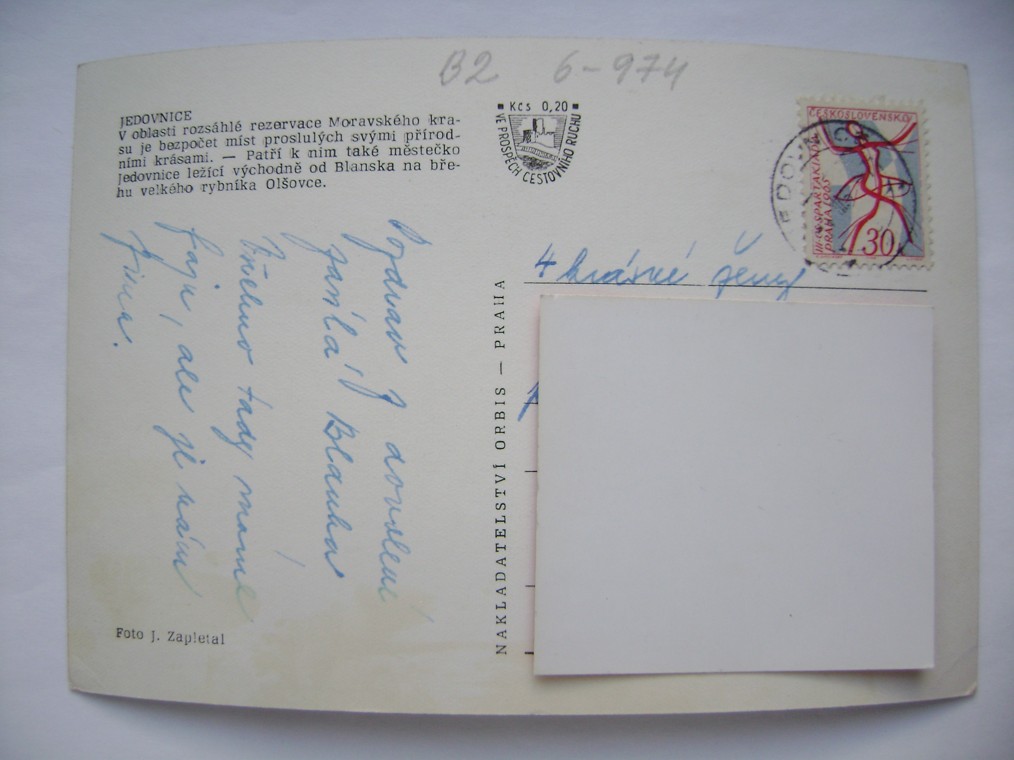 B2 6-974
JEDOVNICE
V oblasti rozsáhlé rezervace Moravského kra-
su je bezpočet míst proslulých svými přírod-
ními krásami. — Patří k nim také městečko
Jedovnice ležící východně od Blanska na bře-
hu velkého rybníka Olšovce.
Kčs 0,20
VE PROSPĚCH CESTOVNÍHO RUCHU
ČESKOSLOVENSKO
III. CS. SPARTAKIÁDA
PRAHA 1965
30
4 krásné ženy
Pozdrav z dovolené
zasílá Blanka
Všechno tady máme
fajn, ale je nám
zima.
NAKLADATELSTVÍ ORBIS — PRAHA
Foto J. Zapletal